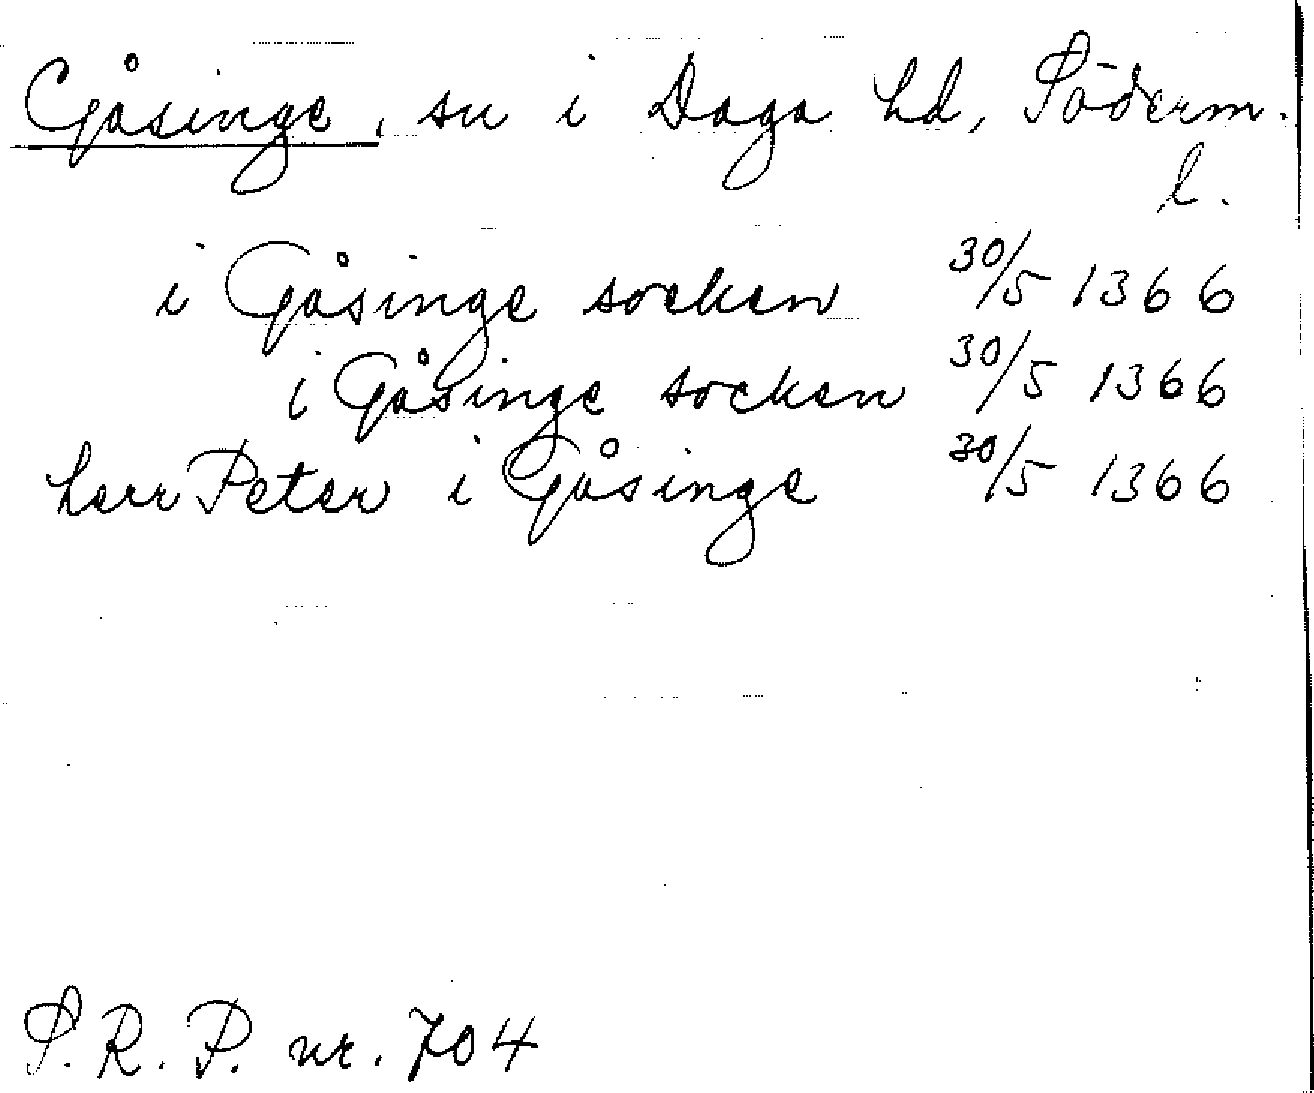 Gåsinge, sn i Daga hd, Söderm.
l.
i Gåsinge socken 30/5 1366
i Gåsinge socken 30/5 1366
herr Peter i Gåsinge 30/5 1366
S.R.P. nr. 704